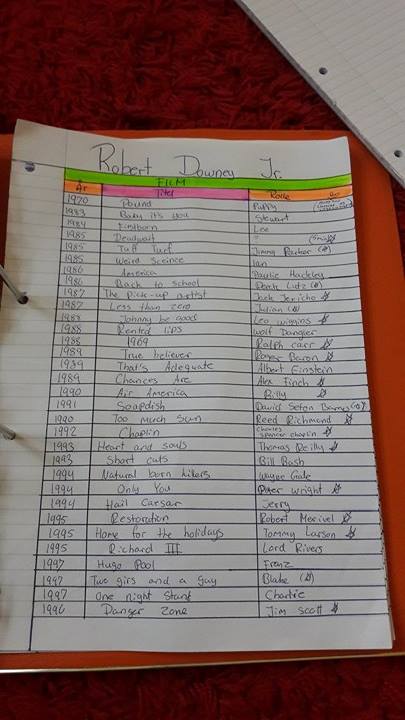 Robert Downey Jr.
FILM
År Titel Rolle
1970 Pound Puppy
1983 Baby it's you Stewart
1984 Firstborn Lee
1985 Deadwait ?
1985 Tuff Turf Jimmy
1985 Weird Sceince Ian
1986 America Paulie Hackley
1986 Back to school Derek Lutz
1987 The Pick-up artist Jack Jericho
1987 Less than zero Julian
1988 Johnny be good Leo wiggins
1988 Rented lips Wolf Dangler
1988 1969 Ralph carr
1989 True believer Roger Baron
1989 That's Adequate Albert Einstein
1989 Chances Are Alex Finch
1990 Air America Billy
1991 Soapdish David Seton Barnes
1990 Too much Sun Reed Richmond
1992 Chaplin Charles spencer chaplin
1993 Heart and souls Thomas Reilly
1993 Short cuts Bill Bush
1994 Natural born killers Wayne Gale
1994 Only You Peter Wright
1994 Hail Caesar Jerry
1995 Restoration Robert Merivel
1995 Home for the holidays Tommy Larson
1995 Richard III Lord Rivers
1997 Hugo Pool Franz
1997 Two girs and a guy Blake
1997 One night Stand Charlie
1996 Danger Zone Jim Scott